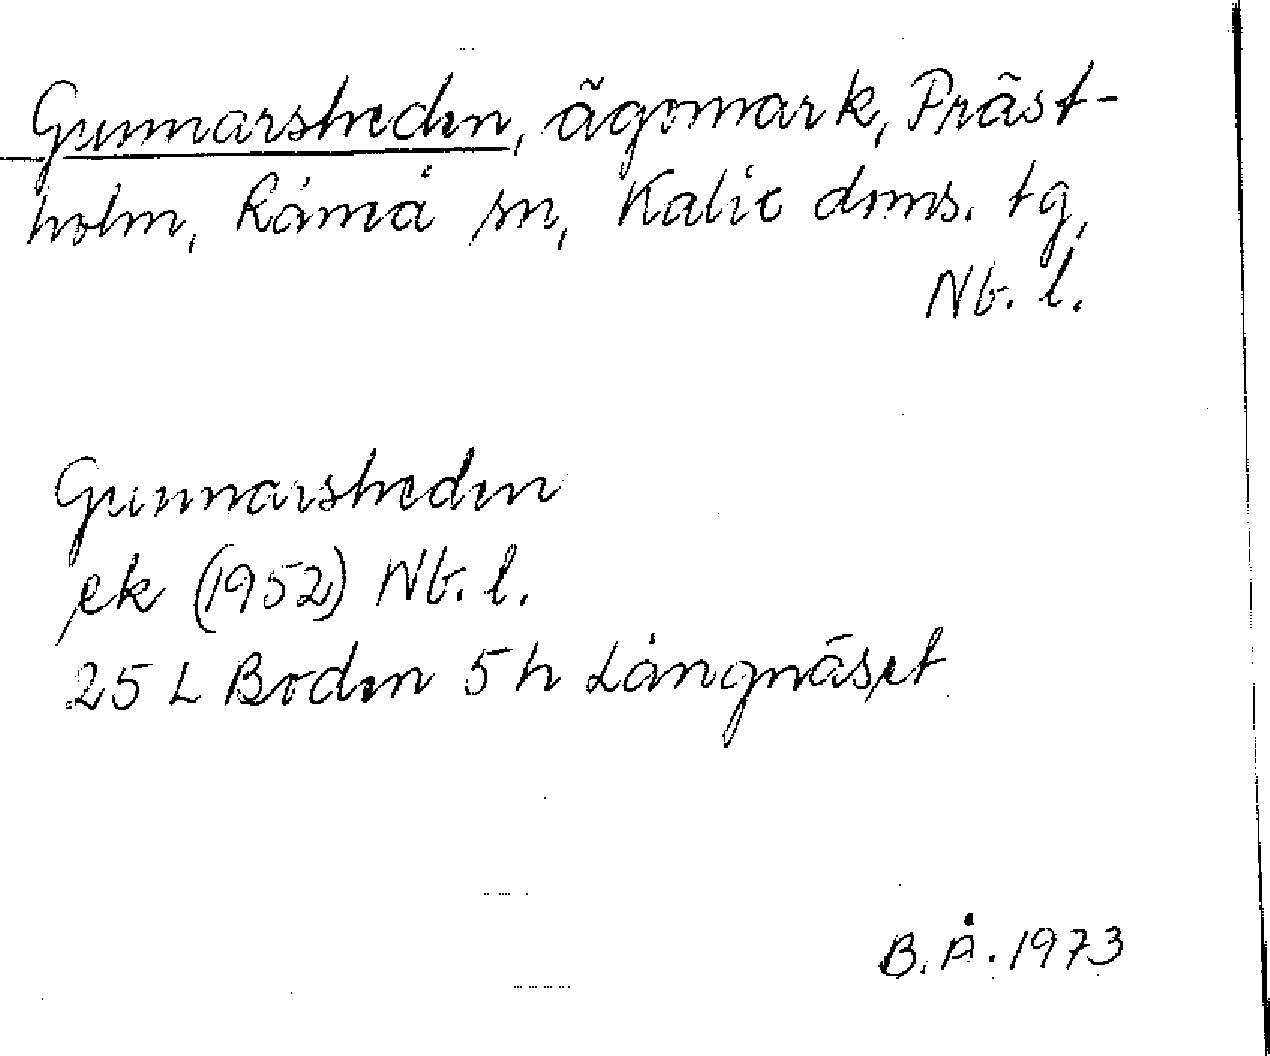 Gunnarsheden, ägomark, Präst-
holm, Råneå sn, Kalix dms. tg,
Nb. l.
Gunnarsheden
ek (1952) Nb. l.
25 L Boden 5 h Långnäset
B. Å. 1973